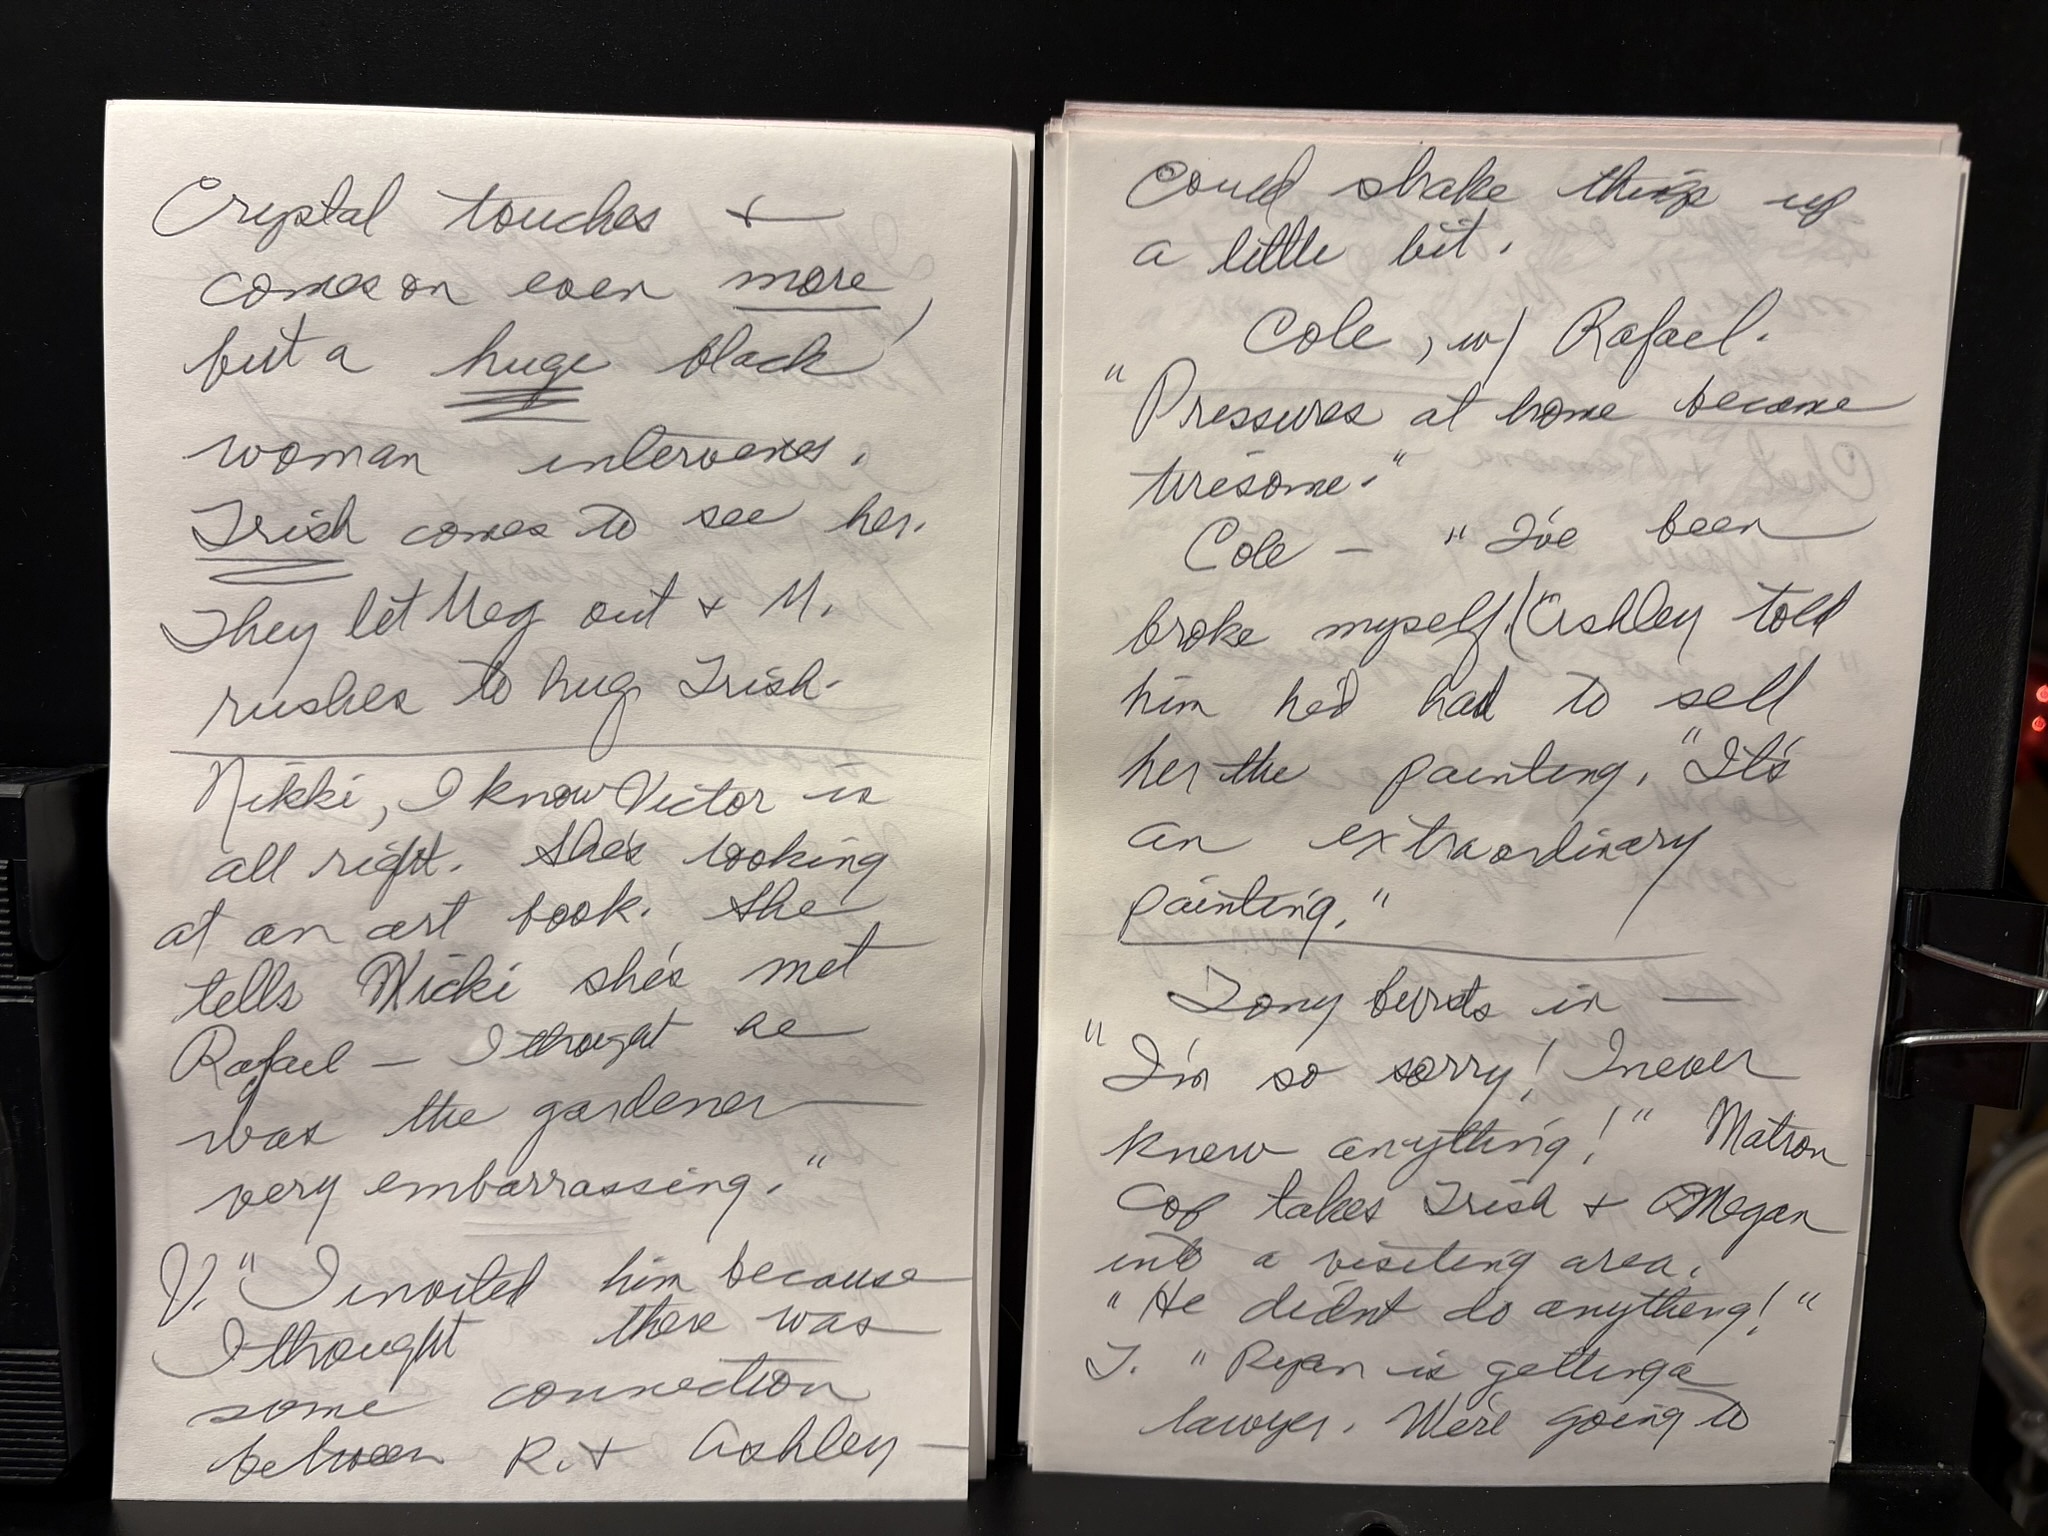 Crystal touches +
comes on even more,
but a huge black
woman intervenes.
Trish comes to see her.
They let Meg out + M.
rushes to hug Trish.
Nikki, I know Victor is
all right. She's looking
at an art book. She
tells Nicki she's met
Rafael — I thought he
was the gardener —
very embarrassing."
V. "I invited him because
I thought there was
some connection
between R. + Ashley —
Could shake things up
a little bit.
Cole, w/ Rafael.
"Pressures at home become
tiresome."
Cole — "I've been
broke myself." (Ashley told
him he'd had to sell
her the painting. "It's
an extraordinary
painting."
Tony bursts in —
"I'm so sorry! I never
knew anything!" Matron
Cop takes Trish + Megan
into a visiting area.
"He didn't do anything!"
T. "Ryan is getting a
lawyer. We're going to